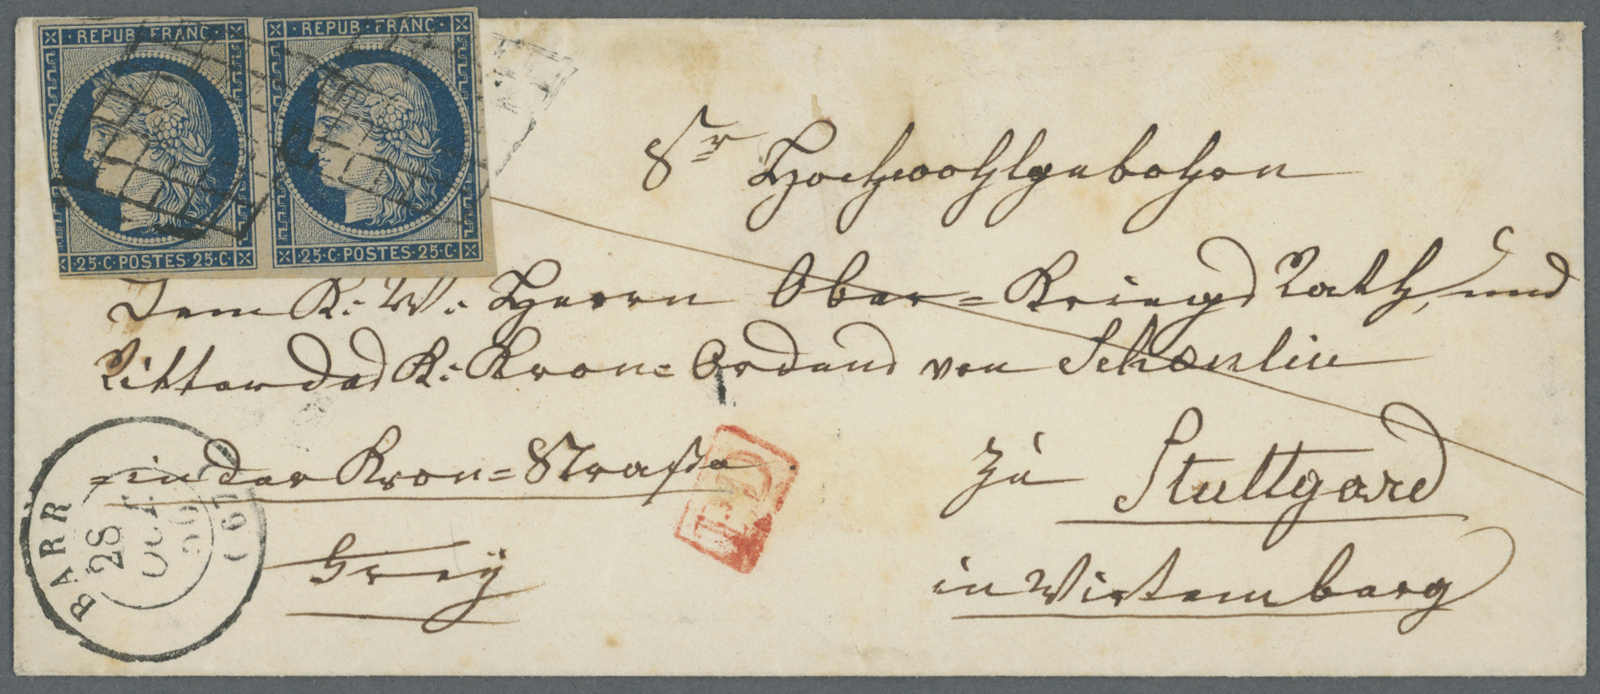 REPUB·FRANC·
REPUB·FRANC·
25·C·POSTES·25·C·
25·C·POSTES·25·C·
Sr Hochwohlgebohren
Dem K: W: Herrn Ober-Kriegs Rath, und
Ritter des K: Kron-Ordens von Schönlin
in der Kron-Straße
zu Stuttgard
in Wirtemberg
PD
BARR
28
OCT
50
(67)